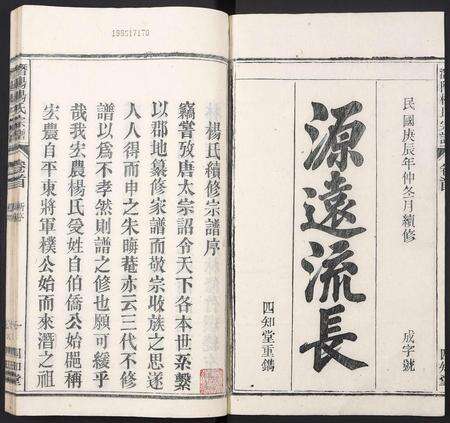 民國庚辰年仲冬月續修
成字號
源遠流長
四知堂重鐫
楊氏續修宗譜序
竊嘗攷唐太宗詔令天下各本世系繫
以郡地纂修家譜而敬宗收族之思遂
人人得而申之朱晦菴亦云三代不修
譜以爲不孝然則譜之修也願可緩乎
哉我宏農楊氏爰姓自伯僑公始肥稱
宏農自平東將軍樸公始而來潛之祖
潛陽楊氏宗譜
卷首
四知堂
199517170
潛陽楊氏宗譜
卷首
新序
四知堂